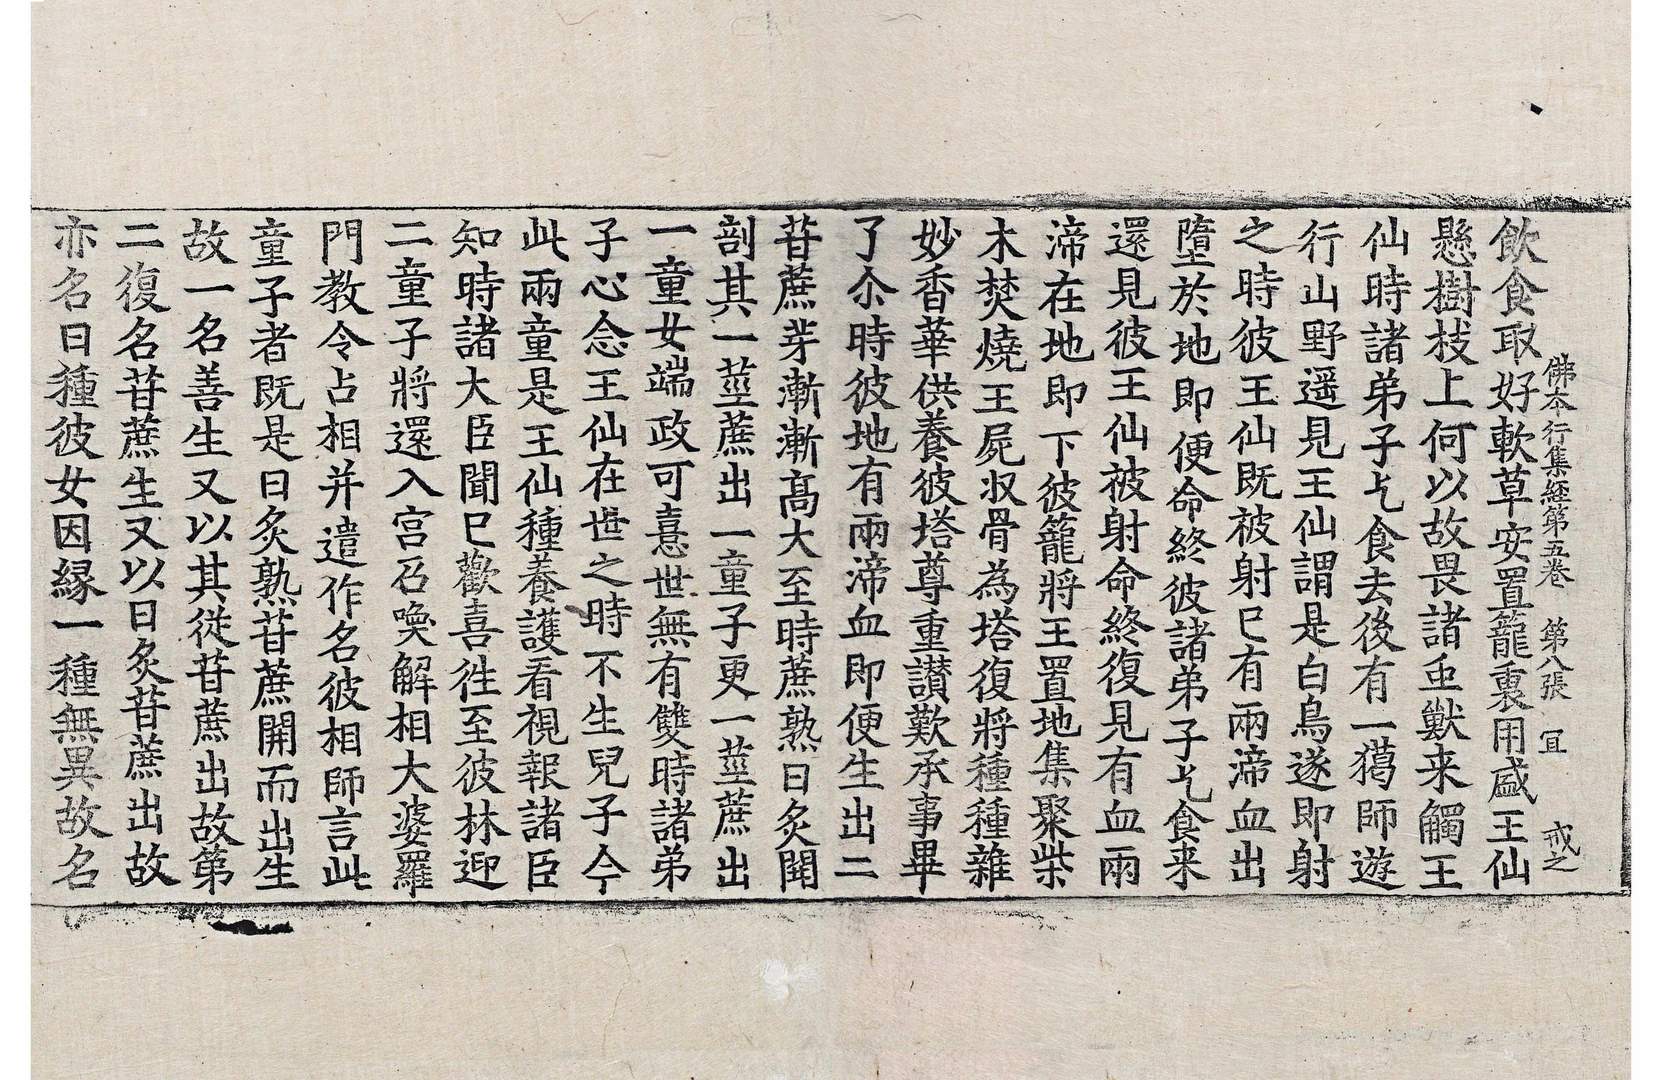 佛本行集経第五卷　第八張　冝　戒之
飲食取好軟草安置籠裏用盛王仙
懸樹枝上何以故畏諸䖝獸来觸王
仙時諸弟子乞食去後有一獦師遊
行山野遥見王仙謂是白鳥遂即射
之時彼王仙既被射已有兩渧血出
墮於地即便命終彼諸弟子乞食来
還見彼王仙被射命終復見有血兩
渧在地即下彼籠將王置地集聚柴
木焚燒王屍収骨為塔復將種種雜
妙香華供養彼塔尊重讃歎承事畢
了尒時彼地有兩渧血即便生出二
苷蔗芽漸漸高大至時蔗熟日炙開
剖其一莖蔗出一童子更一莖蔗出
一童女端政可憙世無有雙時諸弟
子心念王仙在世之時不生兒子今
此兩童是王仙種養護看視報諸臣
知時諸大臣聞已歡喜徃至彼林迎
二童子將還入宫召喚解相大婆羅
門教令占相并遣作名彼相師言此
童子者既是日炙熟苷蔗開而出生
故一名善生又以其從苷蔗出故第
二復名苷蔗生又以日炙苷蔗出故
亦名日種彼女因縁一種無異故名